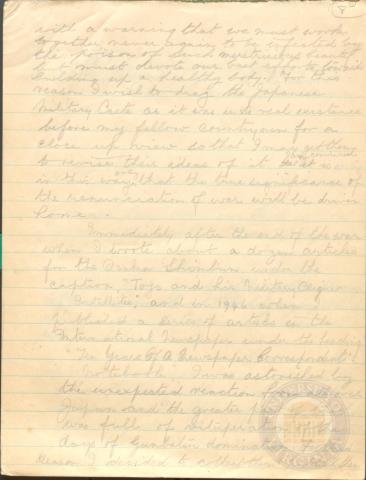 8
with a warning that we must work
together never again to be infected by
the poison of such a
must devote our best efforts toward
building up a healthy body. For this
reason I wish to drag the Japanese
Military Caste as it was in its real existence
before my fellow countrymen for a
close up view so that I may get them
to revise their ideas of it
I am convinced
in this way that the true significance of
only
the renunciation of war will be driven
home.
Immediately after the end of the war
when I wrote about a dozen articles
for the Osaka Shimbun under the
caption, "Tojo and his Military Clique
Satellites", and in 1946 when I
published a series of articles in the
International Newspaper under the heading
"Ten Years of A Newspaper Correspondent's
Notebook" I was astonished by
the unexpected reaction from all over
Japan and the greater part
was full of vituperation
days of Gunbatsu domination
reason I decided to collect